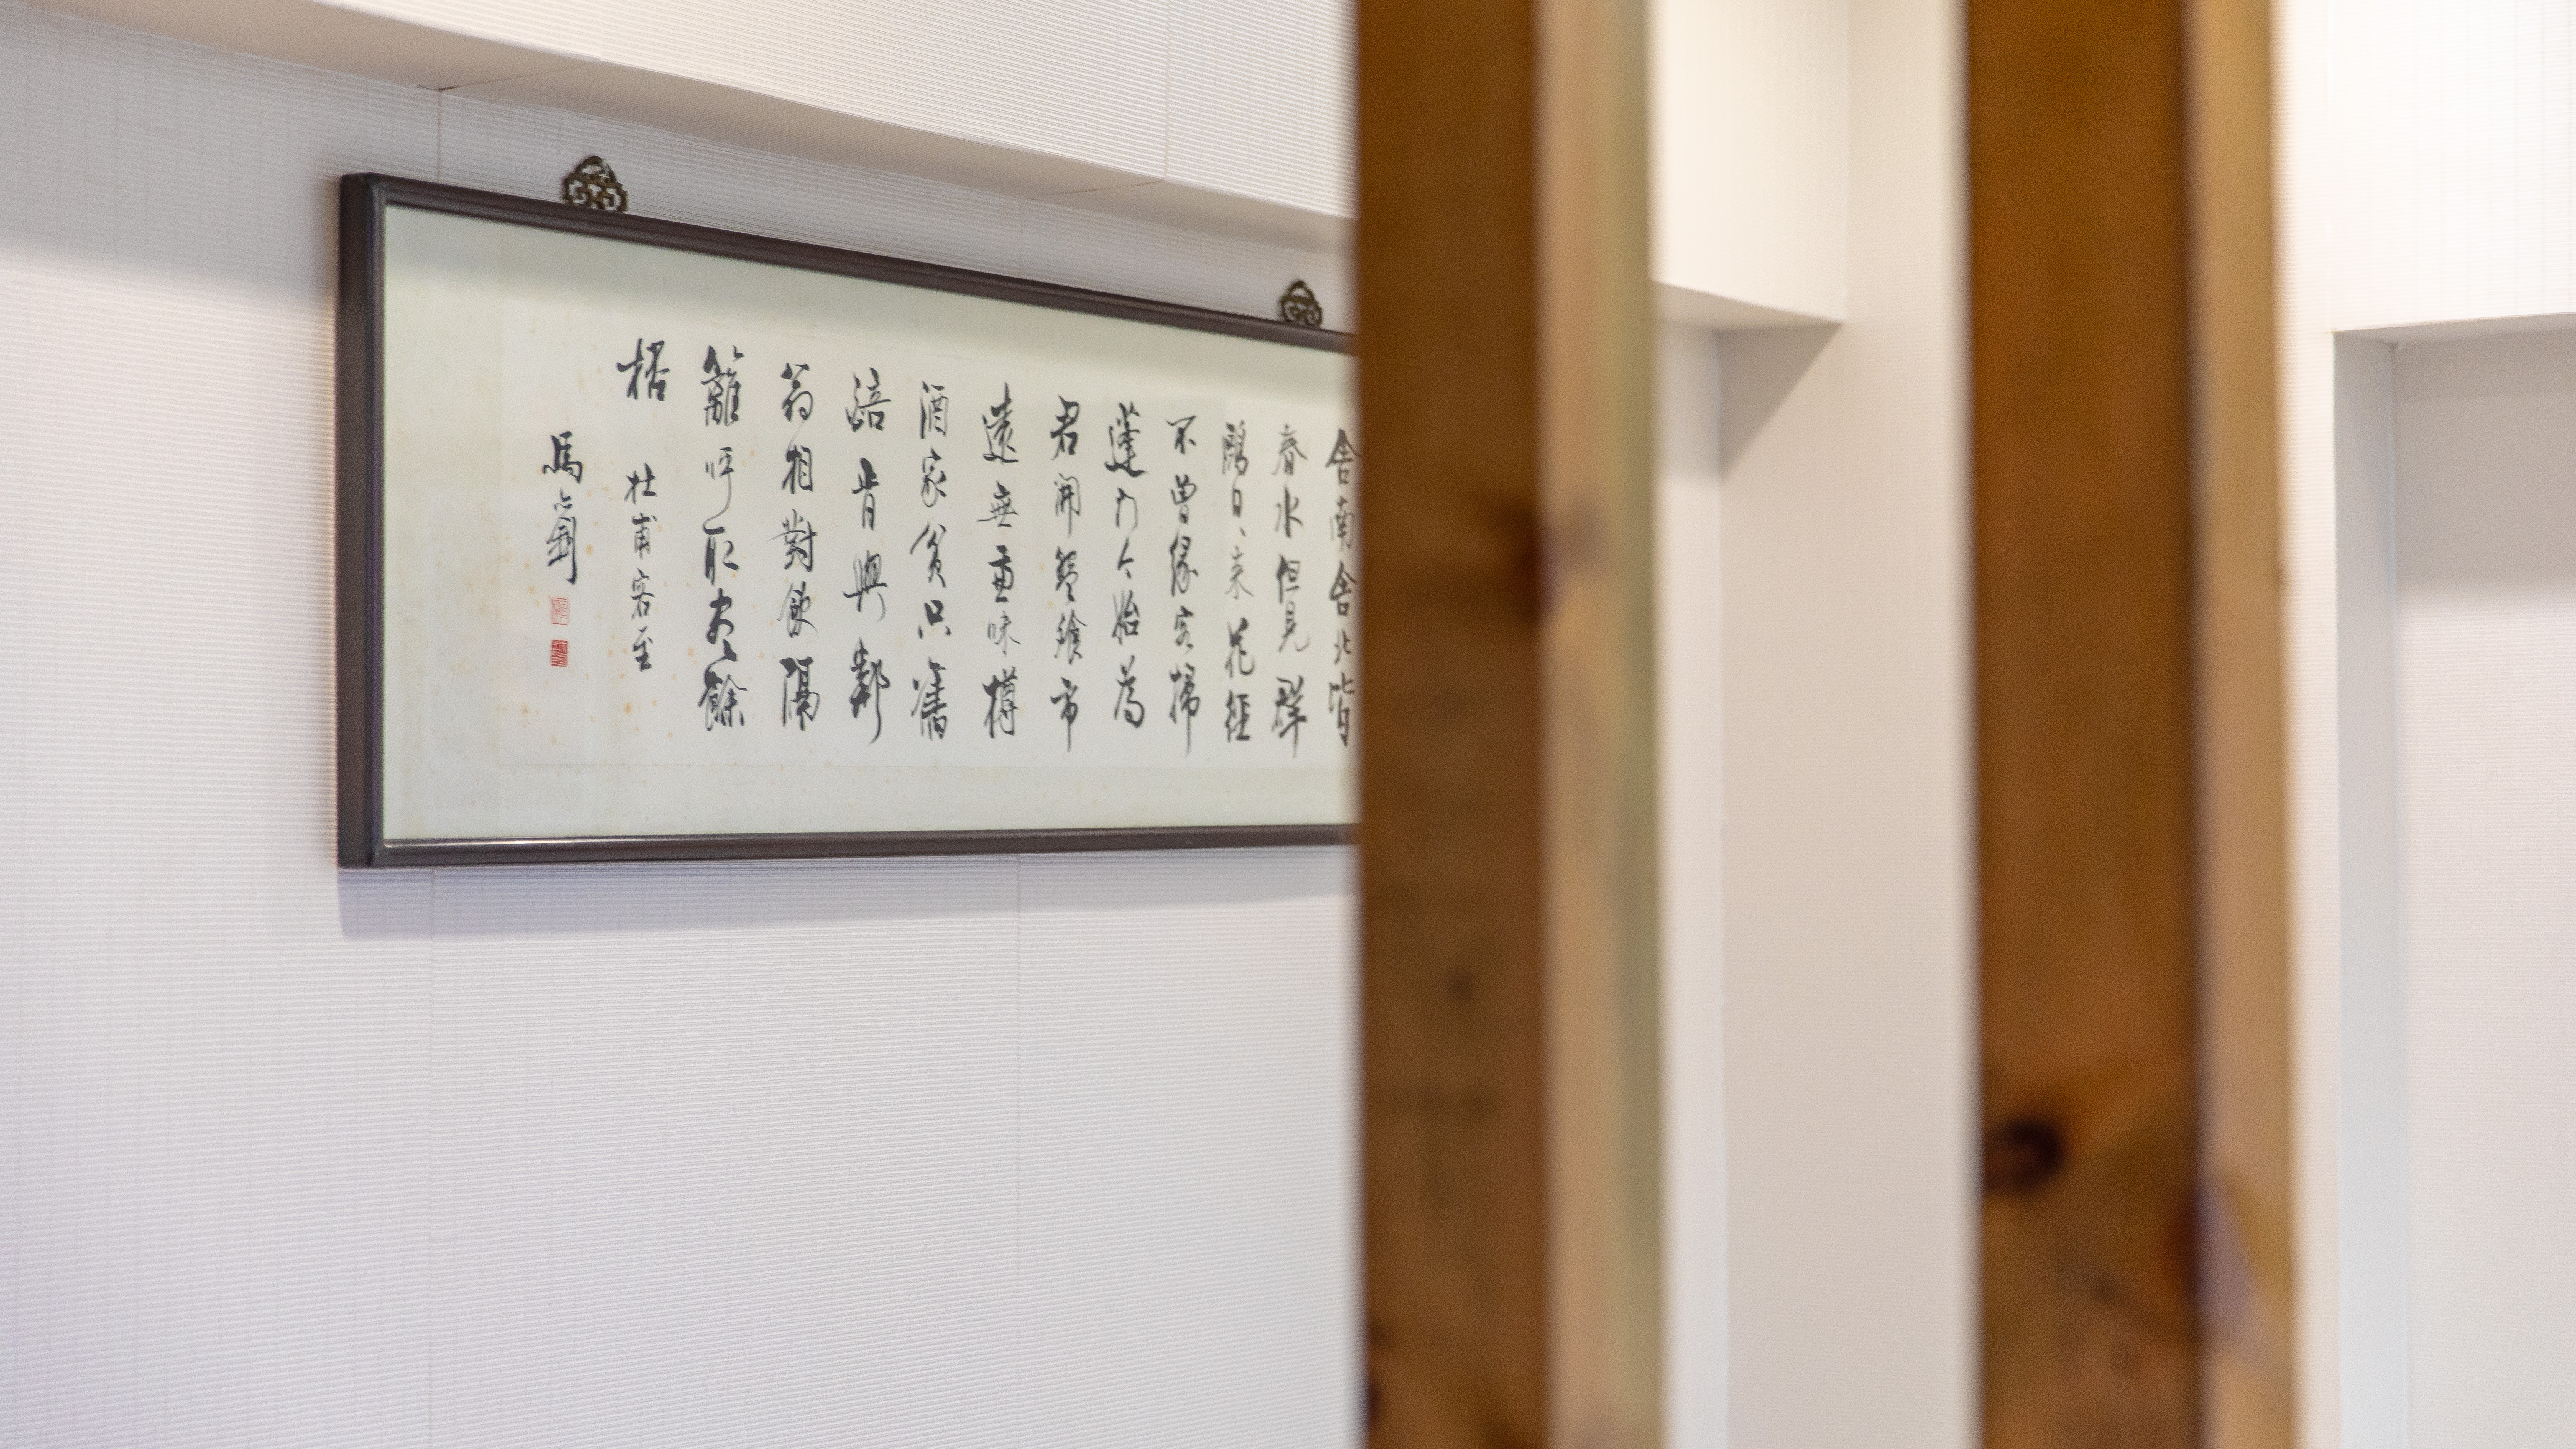 舍南舍北皆
春水但見群
鷗日、来花徑
不曾緣客掃
蓬門今始為
君開盤飧市
遠無兼味樽
酒家貧只舊
醅肯與鄰
翁相對飲隔
籬呼取盡餘
桮
杜甫客至
馬